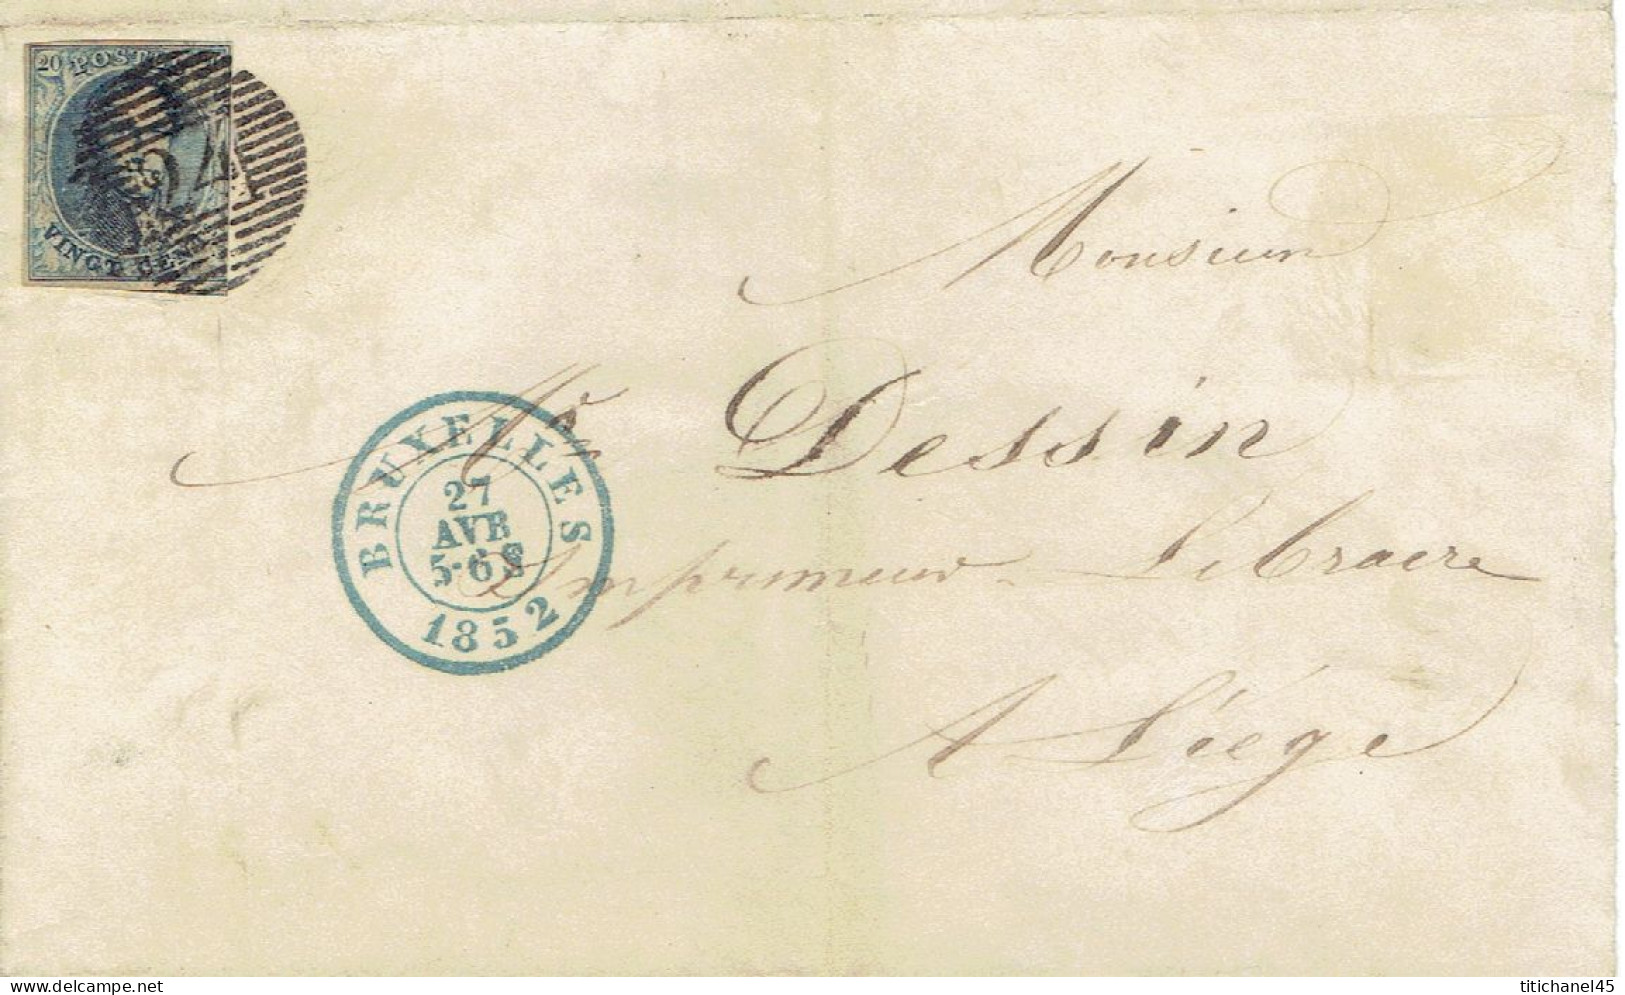 20 POSTES
24
VINGT CENTS
Monsieur
Mr Dessin
Imprimeur-Libraire
A Liége
BRUXELLES
27
AVR
5-6 S
1852
delcampe.net
titichanel45